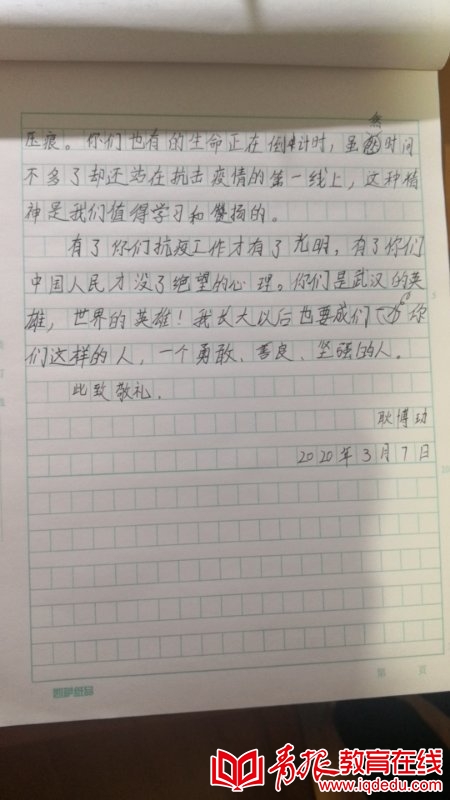 压痕。你们也有的生命正在倒计时，虽然时间
不多了却还站在抗击疫情的第一线上，这种精
神是我们值得学习和赞扬的。
有了你们抗疫工作才有了光明，有了你们
中国人民才没了绝望的心理。你们是武汉的英
雄，世界的英雄！我长大以后也要成为你
们这样的人，一个勇敢、善良、坚强的人。
此致敬礼.
耿博
2020年3月7日
第 页
青报教育在线
www.iqdedu.com